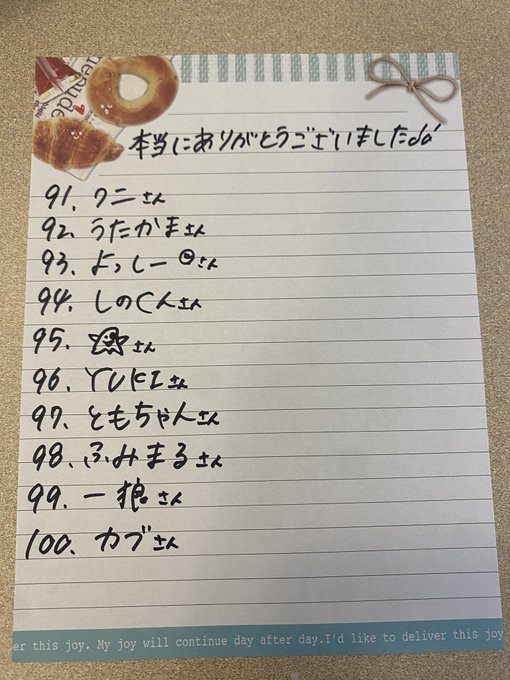 本当にありがとうございました
91. クニさん
92. うたかまさん
93. よっしーさん
94. しのくんさん
95. さん
96. YUKIさん
97. ともちゃんさん
98. ふみまるさん
99. 一狼さん
100. カブさん
er this joy. My joy will continue day after day.I'd like to deliver this joy